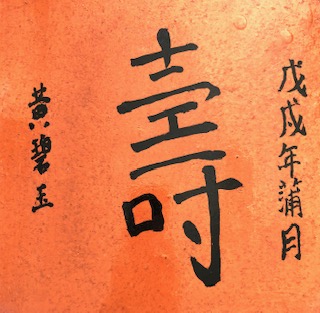 戊戌年蒲月
壽
黃碧玉